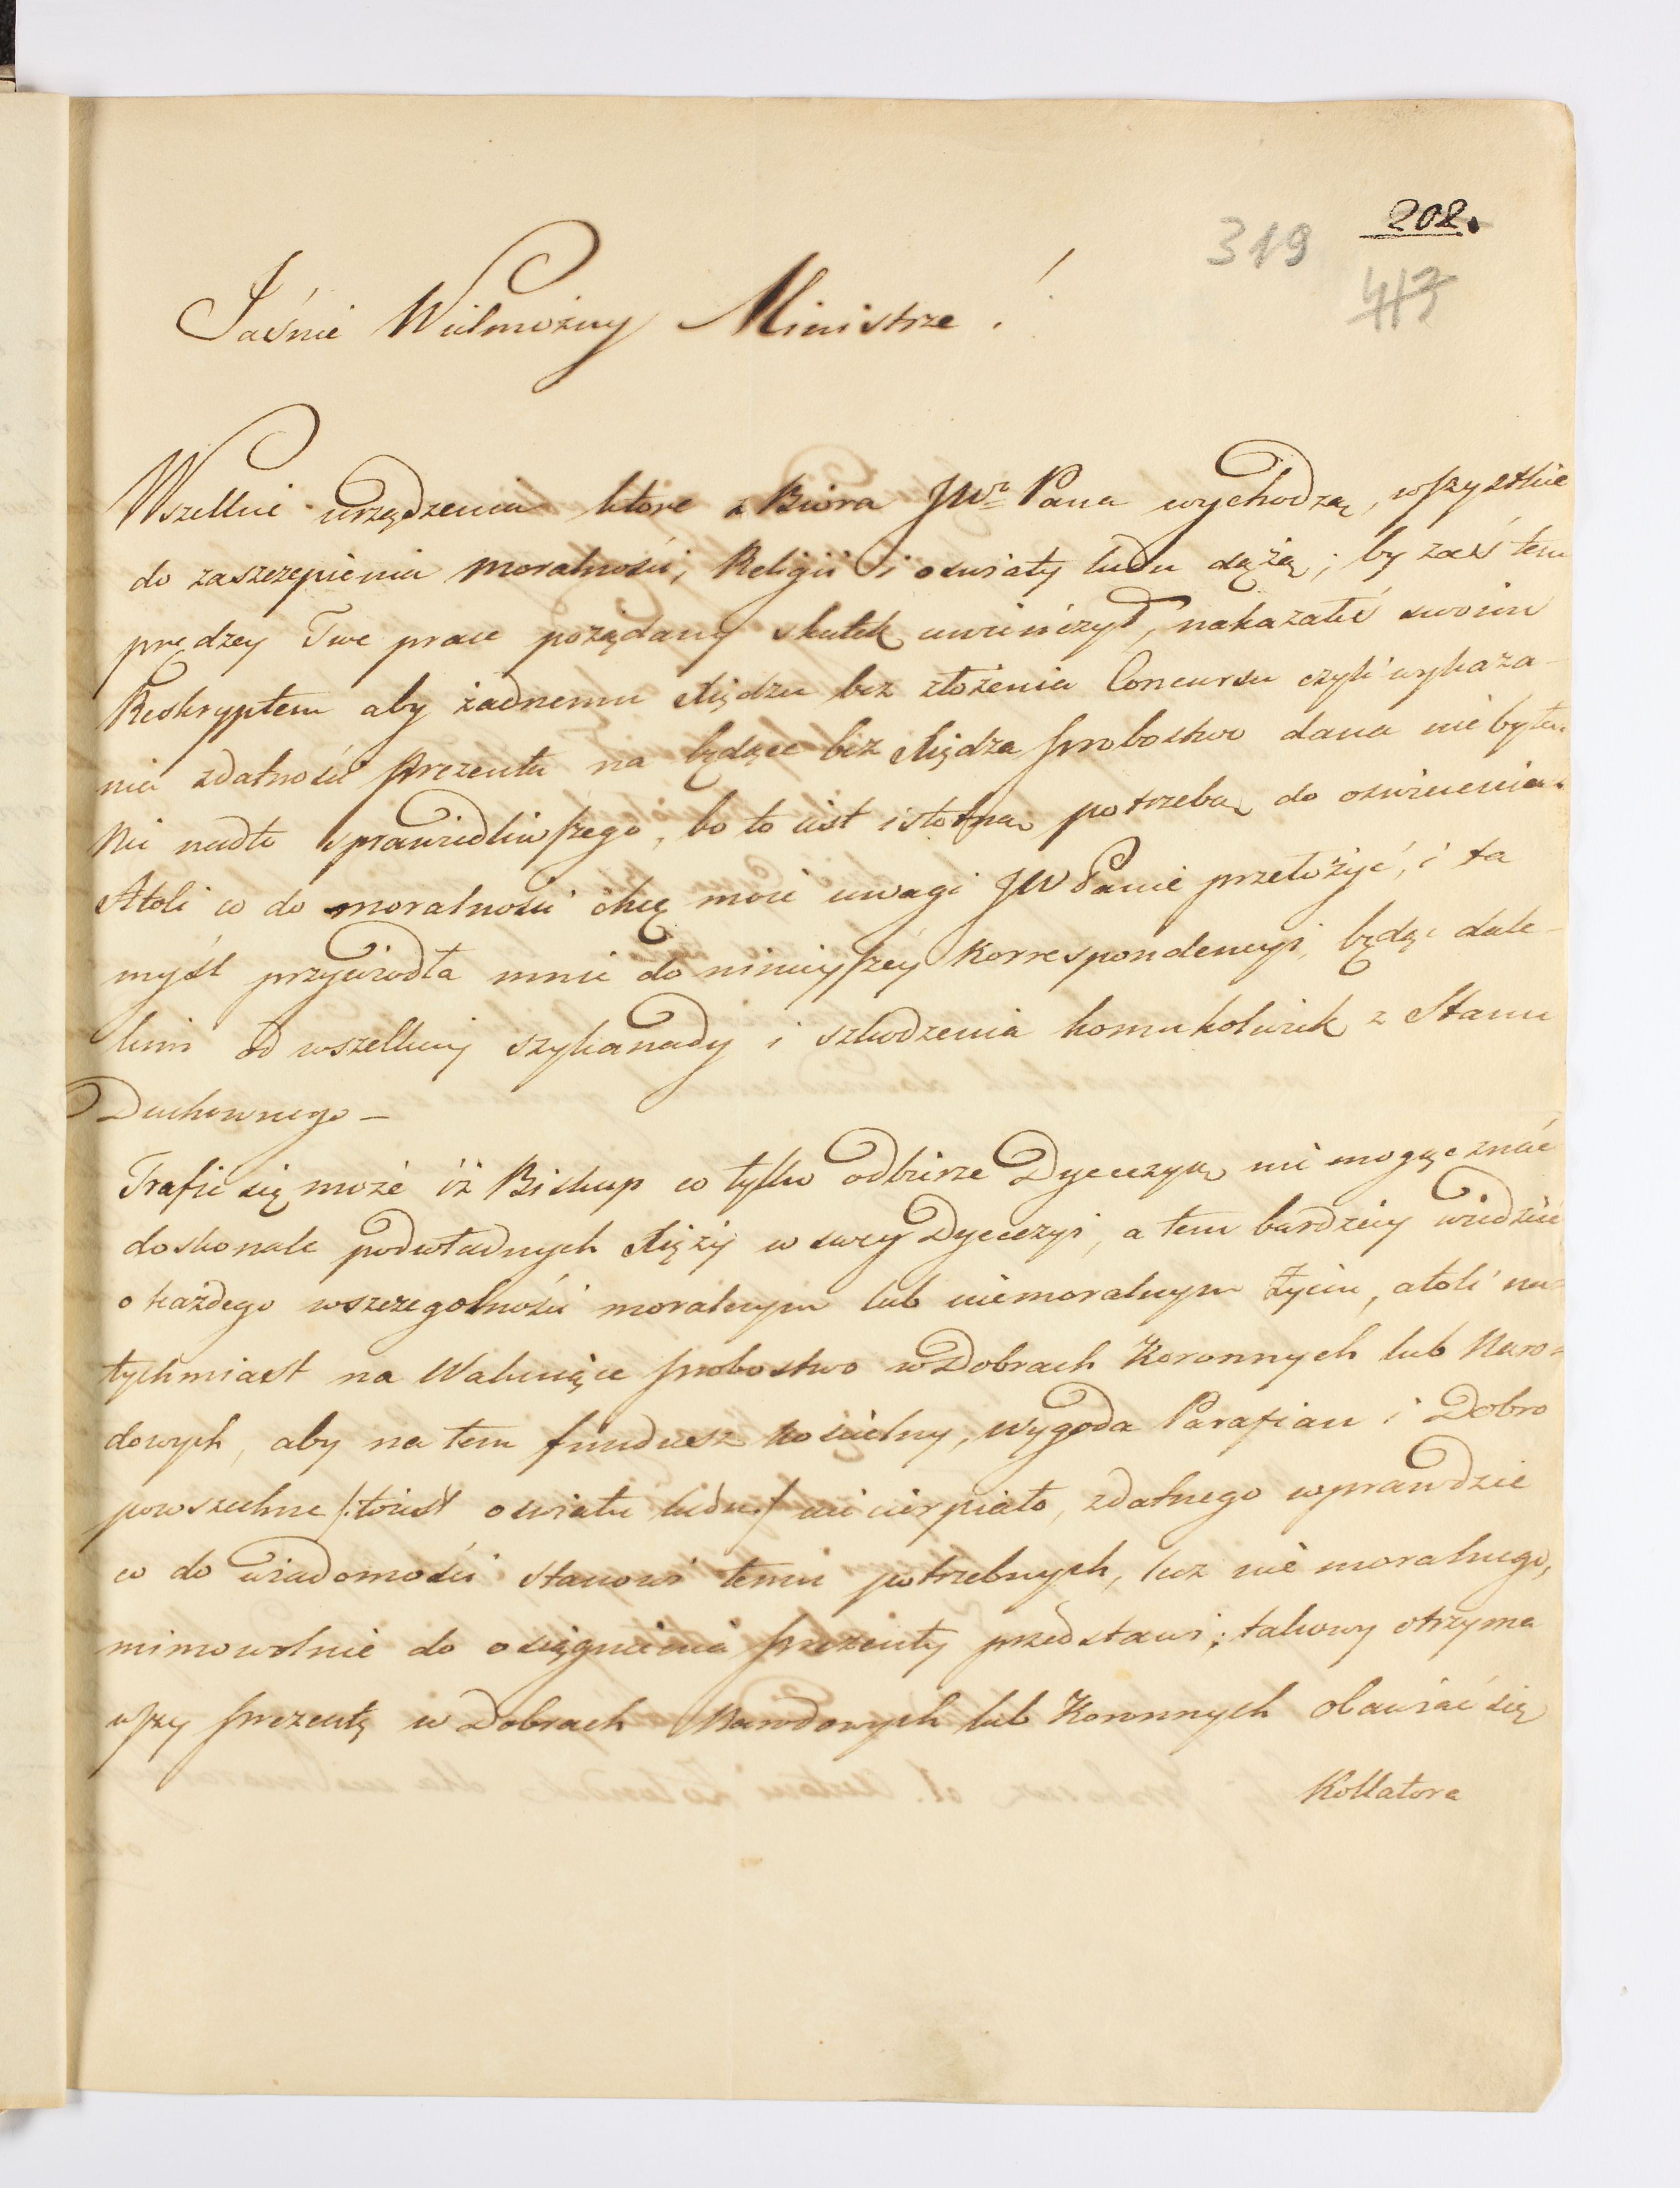 202.
319
417
Jaśnie Wielmożny Ministrze!
Wszelkie urządzenia które z Biora JWo Pana wychodzą, wszystkie
do zaszczepienia moralności, Religii i oswiaty ludu dążą; by zaś tem
prędzey Twe prace pożądany skutek uwieńczył, nakazałeś swoim
Reskryptem aby żadnemu Xiędzu bez złożenia Concursu czyli wykaza-
nia zdatności prezenta na będące bez Xiędza probostwo dana nie była.
Nic nadto sprawiedliwszego, bo to iest istotną potrzebą do oswiecenia.
Atoli co do moralności chcę moie uwagi JW Panie przełożyć, i ta
myśl przywiodła mnie do ninieyszéy Korrespondencyi, będąc dale-
kim od wszelkiey szykanady i szkodzenia komukolwiek z Stanu
Duchownego –
Trafić się może iż Biskup co tylko odbierze Dyecezyą nie mogąc znać
doskonale podwładnych Xięży w swey Dyecezyi, a tem bardziey wiedzieć
o każdego wszczegolności moralnym lub niemoralnym życiu, atoli na-
tychmiast na Wakuiące probostwo w Dobrach Koronnych lub Naro-
dowych, aby na tem fundusz kościelny, wygoda Parafian i Dobro
powszechne /: toiest oswiata ludu :/ nie cierpiało, zdatnego wprawdzie
co do wiadomości stanowi temu potrzebnych, lecz nie moralnego,
mimowolnie do osiągnienia prezenty przedstawi; takowy otrzyma
wszy prezentę w Dobrach Narodowych lub Koronnych obawiać się
Kollatora